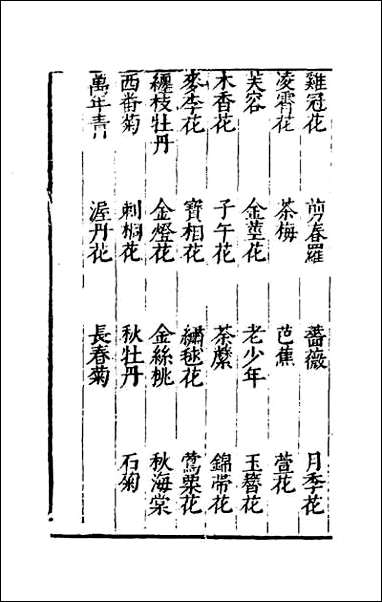 雞冠花 剪春羅 薔薇 月季花
凌霄花 茶梅 芭蕉 萱花
芙容 金莖花 老少年 玉簪花
木香花 子午花 荼蘼 錦帶花
麥李花 寶相花 繡毬花 鶯粟花
纏枝牡丹 金燈花 金絲桃 秋海棠
西畨菊 刺桐花 秋牡丹 石菊
萬年青 渥丹花 長春菊